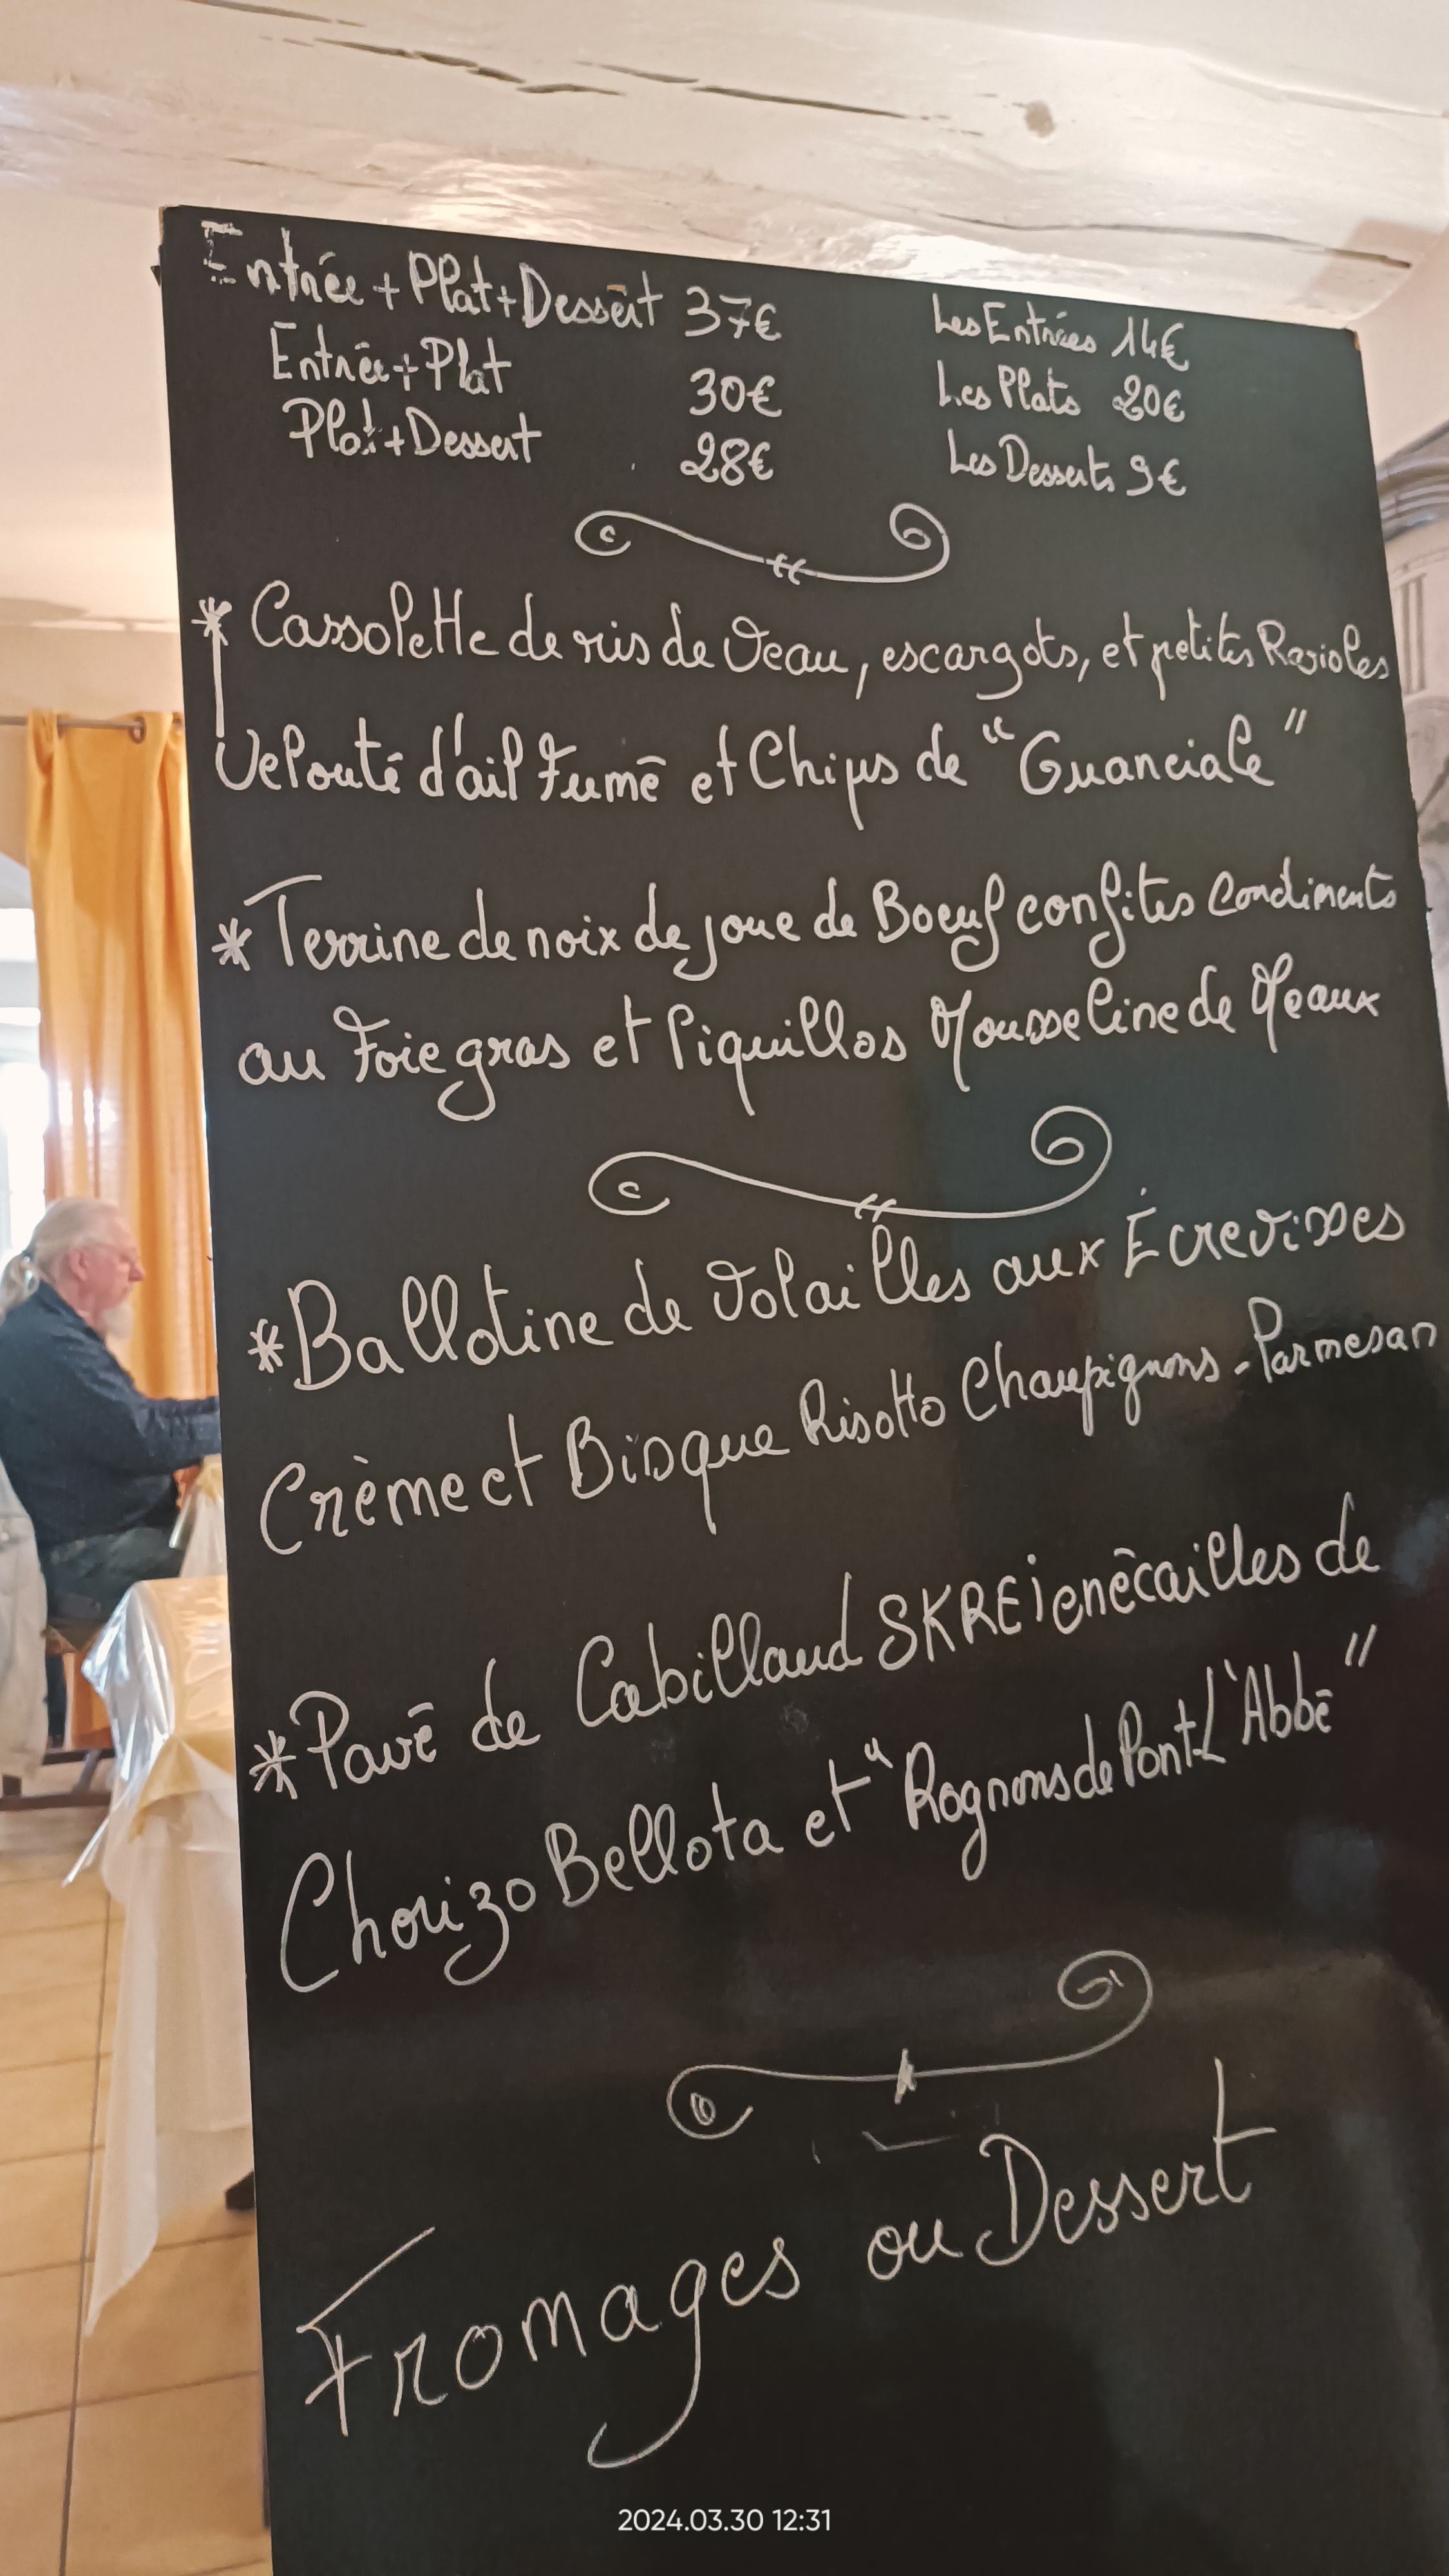 Entrée+Plat+Dessert 37€
Entrée+Plat 30€
Plat+Dessert 28€
Les Entrées 14€
Les Plats 20€
Les Desserts 9€
* Cassolette de ris de Veau, escargots, et petites Ravioles
Velouté d'ail Fumé et Chips de "Guanciale"
* Terrine de noix de joue de Boeuf confites Condiments
au Foie gras et Piquillos Mousseline de Meaux
* Ballotine de Volailles aux Écrevisses
Crème et Bisque Risotto Champignons - Parmesan
* Pavé de Cabillaud SKREi en écailles de
Chorizo Bellota et "Rognons de Pont L'Abbé"
Fromages ou Dessert
2024.03.30 12:31